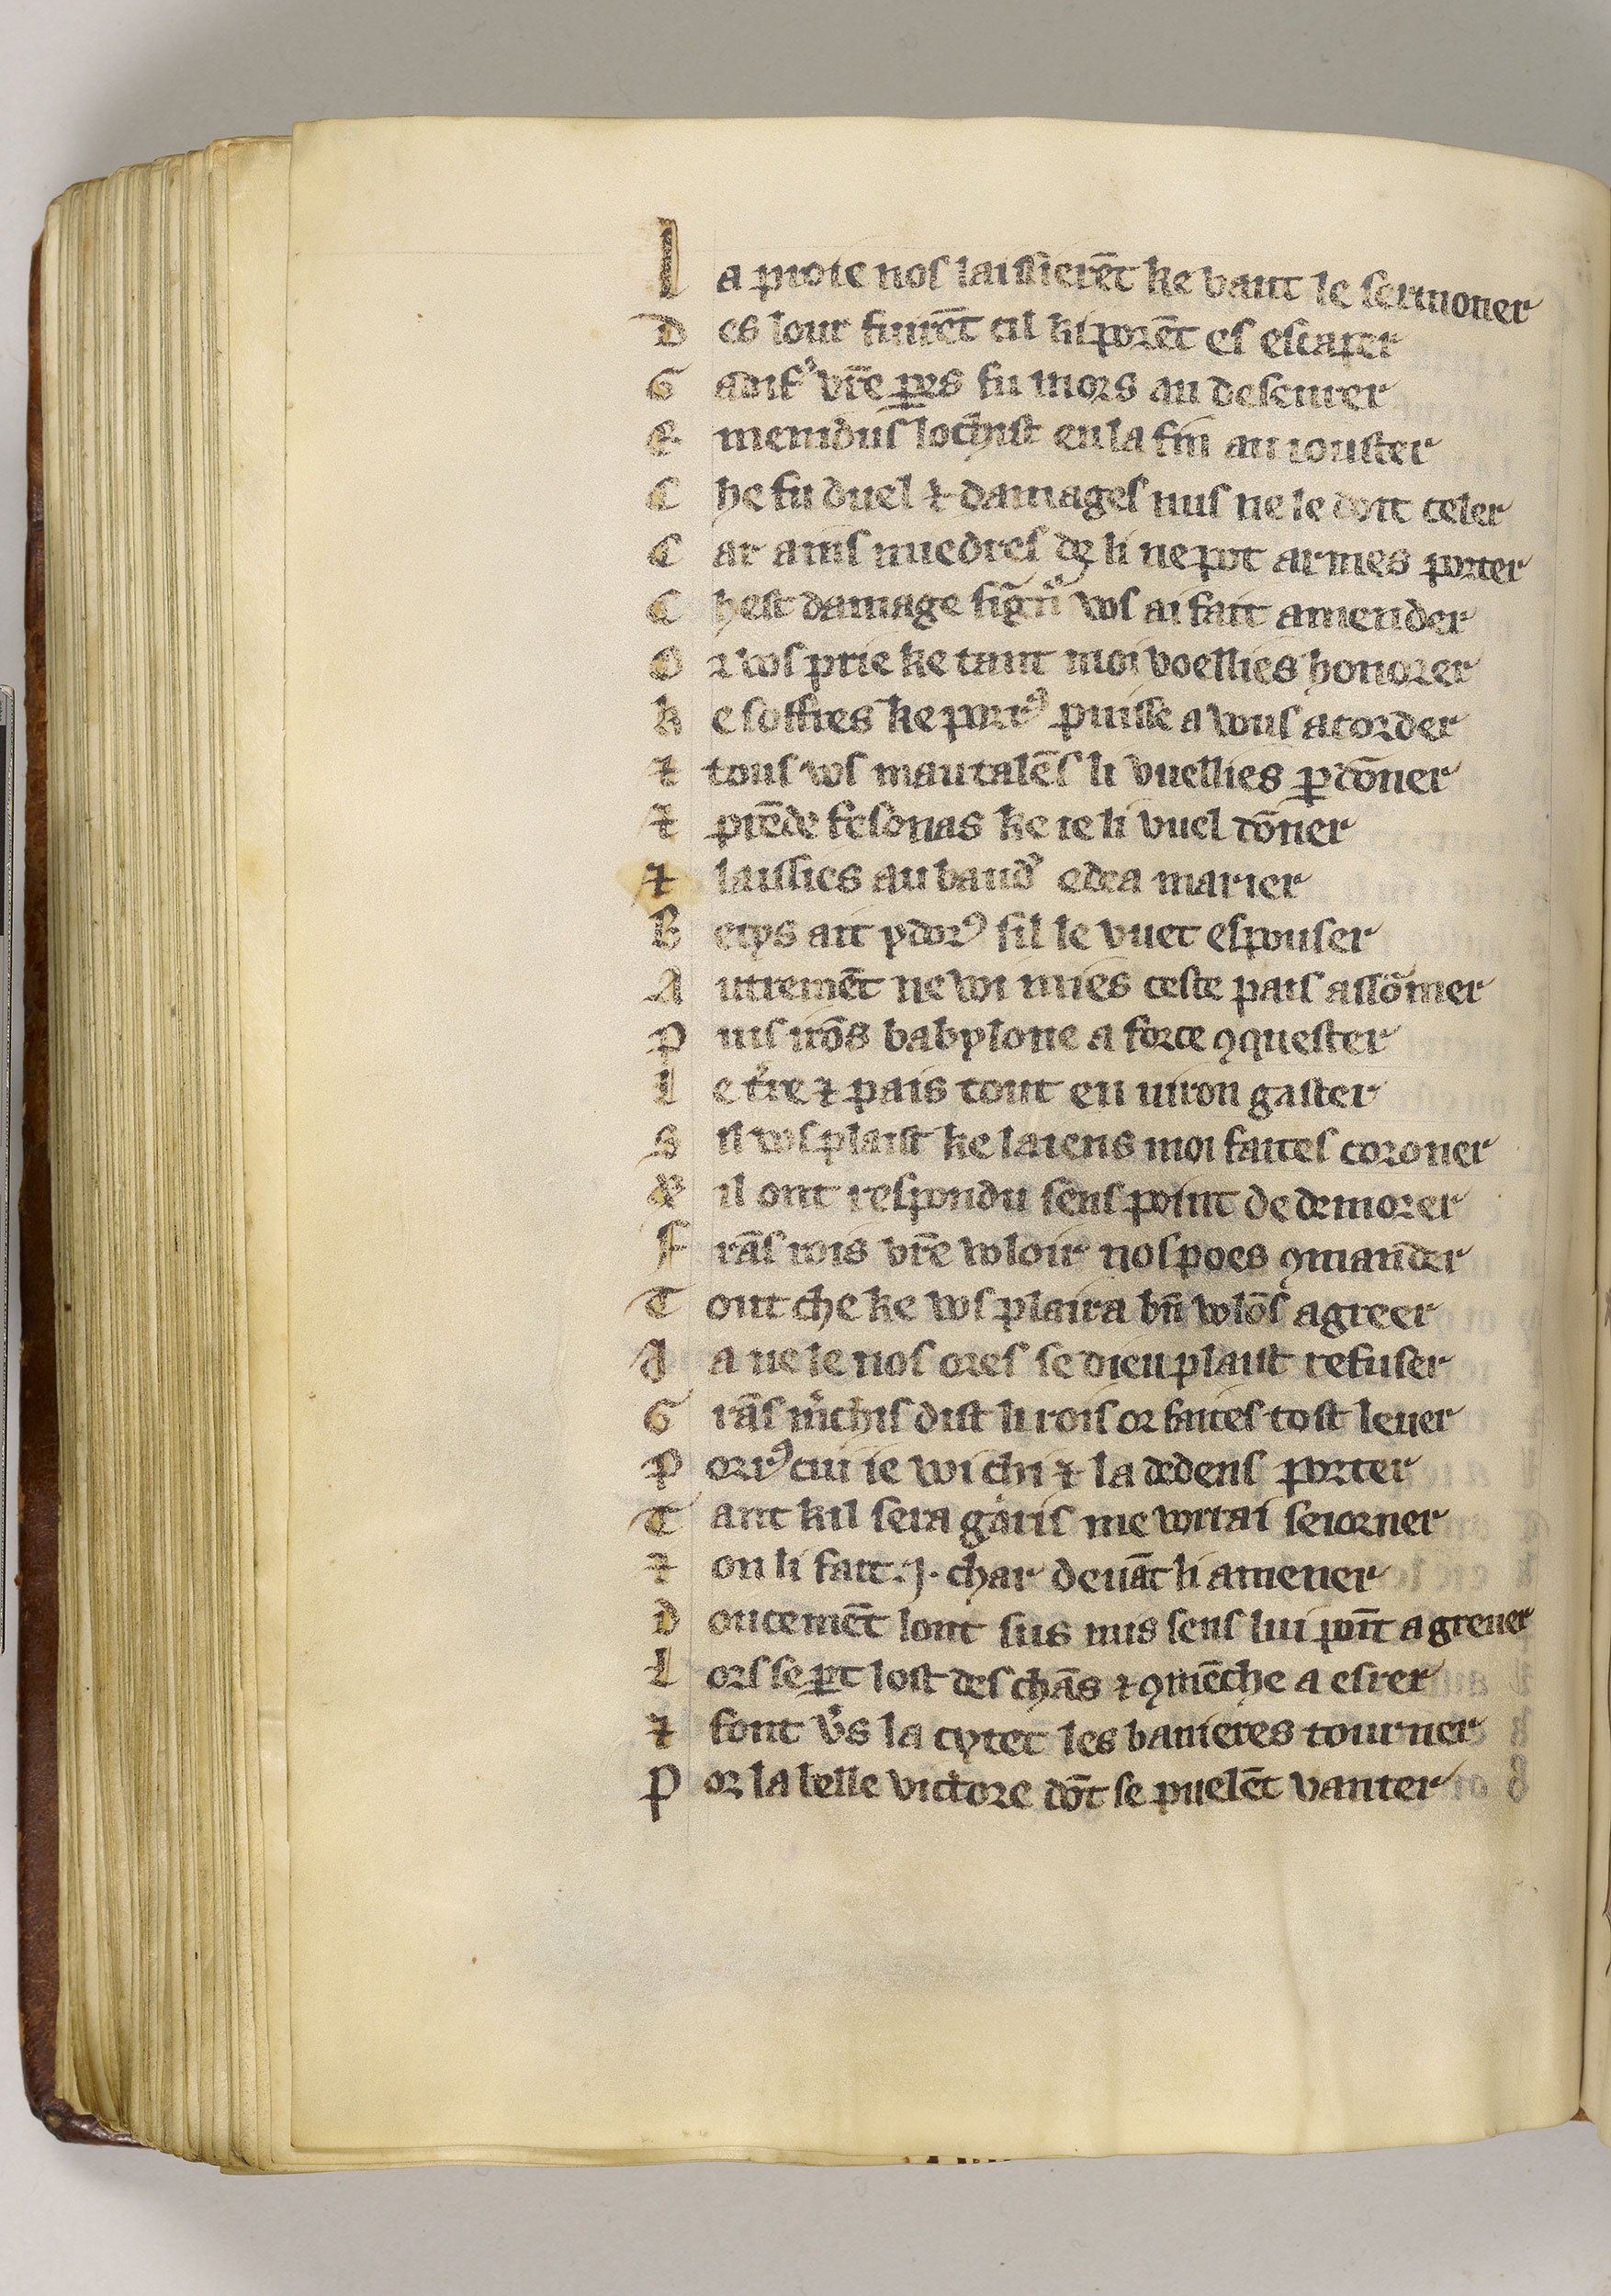 La proie nos laissierēt ke vaut le sermoner
Des lour fuirēt cil ki porēt es escaper
Gadifꝰ vr̄e peres fu mors au deseurer
Emenidus lochist en la fin au iouster
Che fu duel ⁊ damages nus ne le doit celer
Car ains muedres de li ne pot armes porter
Chest damage sign̄ vos ai fait amender
Or vos prie ke tant moi voellies honorer
Ke soffres ke porrꝰ puisse a vous acorder
⁊ tous vos mautalēs li vuellies ꝑdōner
⁊ prēde fesonas ke ie li vuel dōner
⁊ laissies au baudꝰ edea marier
Betys ait ydorꝰ sil le vuet espouser
Autremēt ne voi mies ceste pais assōmer
Puis irōs babylone a force ꝯquester
Le tʼre ⁊ pais tout en uiron gaster
Sil vos plaist ke laiens moi faites coroner
⁊ il ont respondu sens point de demorer
Frās rois vr̄e voloir nos poes ꝯmander
Tout che ke vos plaira bn̄ volōs agreer
Ja ne le nos ores se dieu plaist refuser
Grās mʼchis dist li rois or faites tost leuer
Porrꝰ cui ie voi chi ⁊ la dedens porter
Tant kil sera garis me vorrai seiorner
⁊ on li fait .j. char deuāt li amener
Doucemēt lont sus mis sens lui poīt a greuer
Lors se ꝑt lost des chās ⁊ ꝯmēche a esrer
⁊ font vʼs la cytet les banieres tourner
Por la belle victore dōt se puelēt vanter